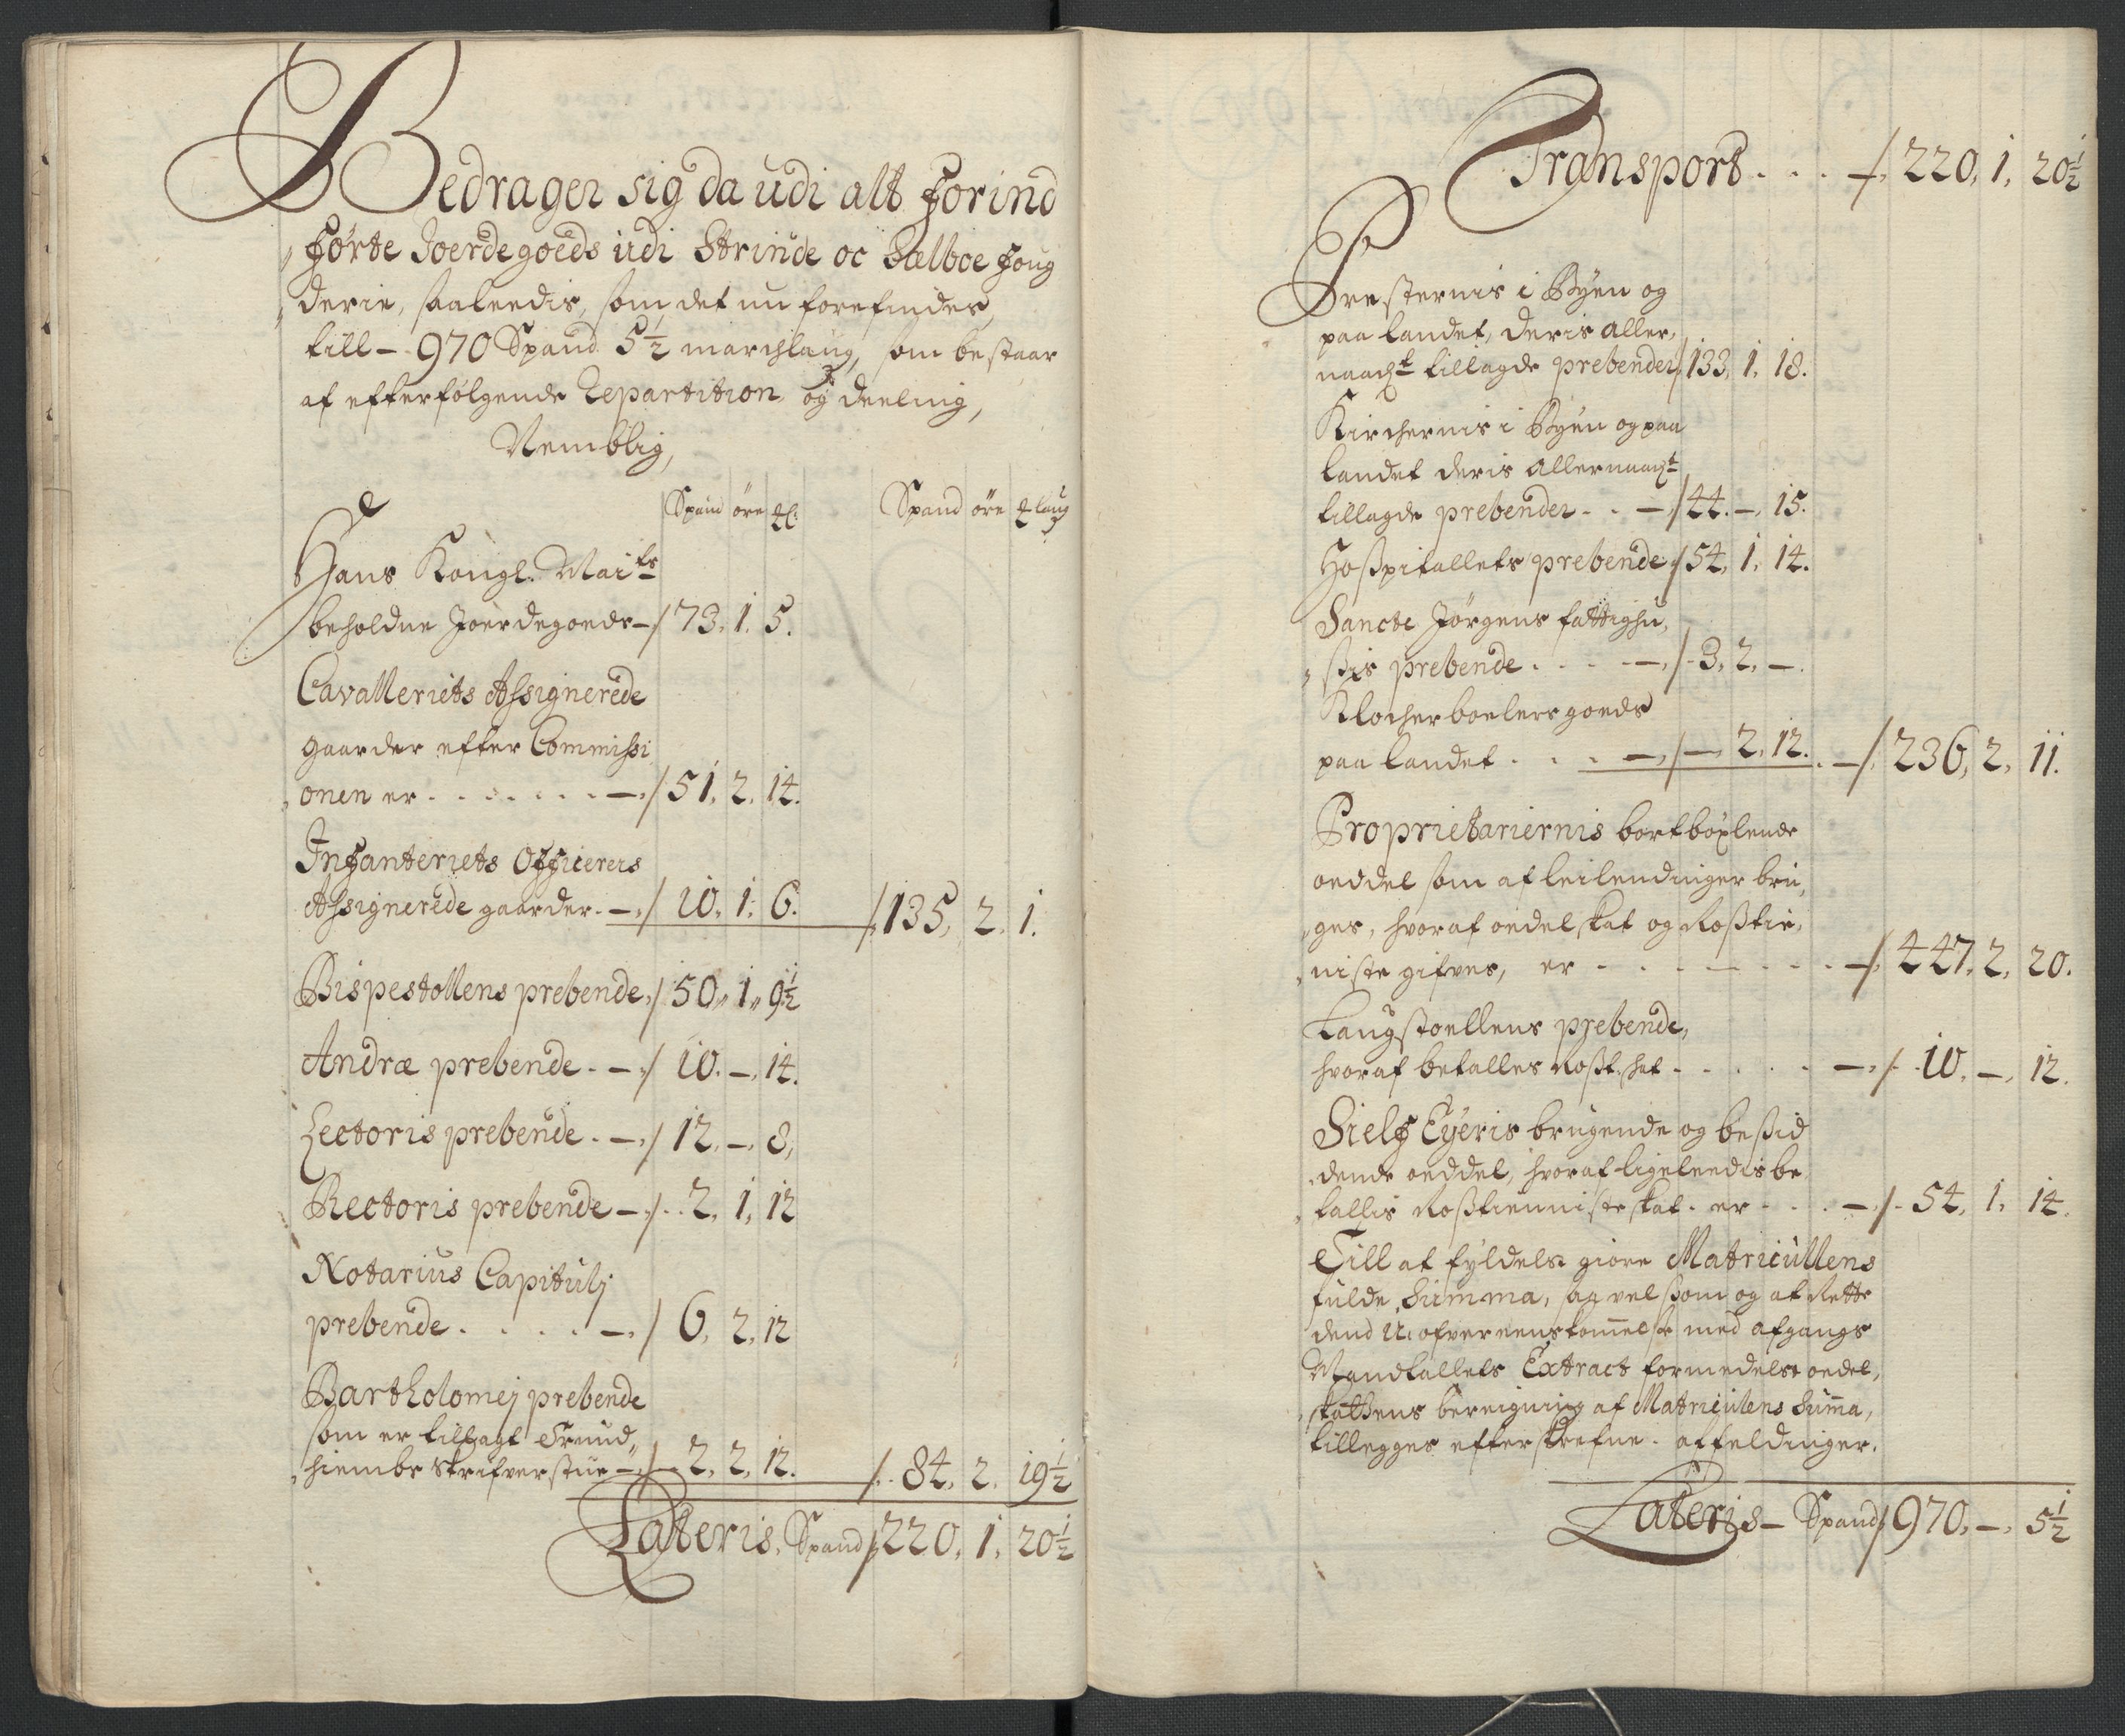 Bedrager sig da udi alt forind
førte Joerdegoeds udi Strinde oc Sælboe foug
derie, saaleedis, som det nu forefindes,
till - 970 Spand 5½ marchlaug, som bestaar
af efterfølgende Repartition og deeling,
Nemblig,
Spand öre Spand öre laug
Hans Kongl. Mai ts
beholdne Joerdegoeds - / 73. 1. 5.
Cavalleriets Assignerede
gaarder efter Commissi
onen er . . . . . . - / 51. 2. 14.
Infanteriets Officerers
Assignerede gaarder. - / 10. 1. 6. / 135. 2. 1.
Bispestollens prebende / 50. 1. 9½
Andræ prebende. - / 10. -. 14.
Lectoris prebende. - / 12. -. 8.
Rectoris prebende - / 2. 1. 12
Notarius Capitulj
prebende . . . . - / 6. 2. 12
Bartholomej prebende
som er tillagt Trund
hiembs Skrifverstue - / 2. 2. 12. / 84. 2. 19½
Lateris. Spand / 220. 1. 20½
Transport . . . - / 220. 1. 20½
Presternis i Byen og
paa landet, deris aller,
naadt tillagde prebender / 133. 1. 18.
Kirchernis i Byen og paa
landet deris allernaadt
tillagde prebender . . - / 44. -. 15.
Hosspitallets prebende / 54. 1. 14.
Sancte Jørgens fattighu,
ssis prebende . . . . - / 3. 2. -.
Klocherboelers goeds
paa landet . . . - / -. 2. 12. - / 236. 2. 11.
Proprietariernis bortbøxlende
oeddel som af leilendinger bru,
ges, hvoraf oedelskat og Rosstie,
niste gifves, er - . . . . . - / 447. 2. 20.
Laugstoellens prebende,
hvoraf betalles Rosst. skat . . . . . - / 10. -. 12.
Sielf Eyeris brugende og bessid
dende oeddel, hvoraf ligeleedis be
tallis Rosstienniste skat. er . . . - / 54. 1. 14.
Till at fyldest giøre Matricullens
fulde Summa, saa vel som og at Rette
dend U. ofvereenskommelse med afgangs
Mandtallets Extract formedelst oedel,
skattens bereigning af Matriculens Summa,
tillegges efterskrefne. affeldinger.
Lateris - Spand / 970. -. 5½